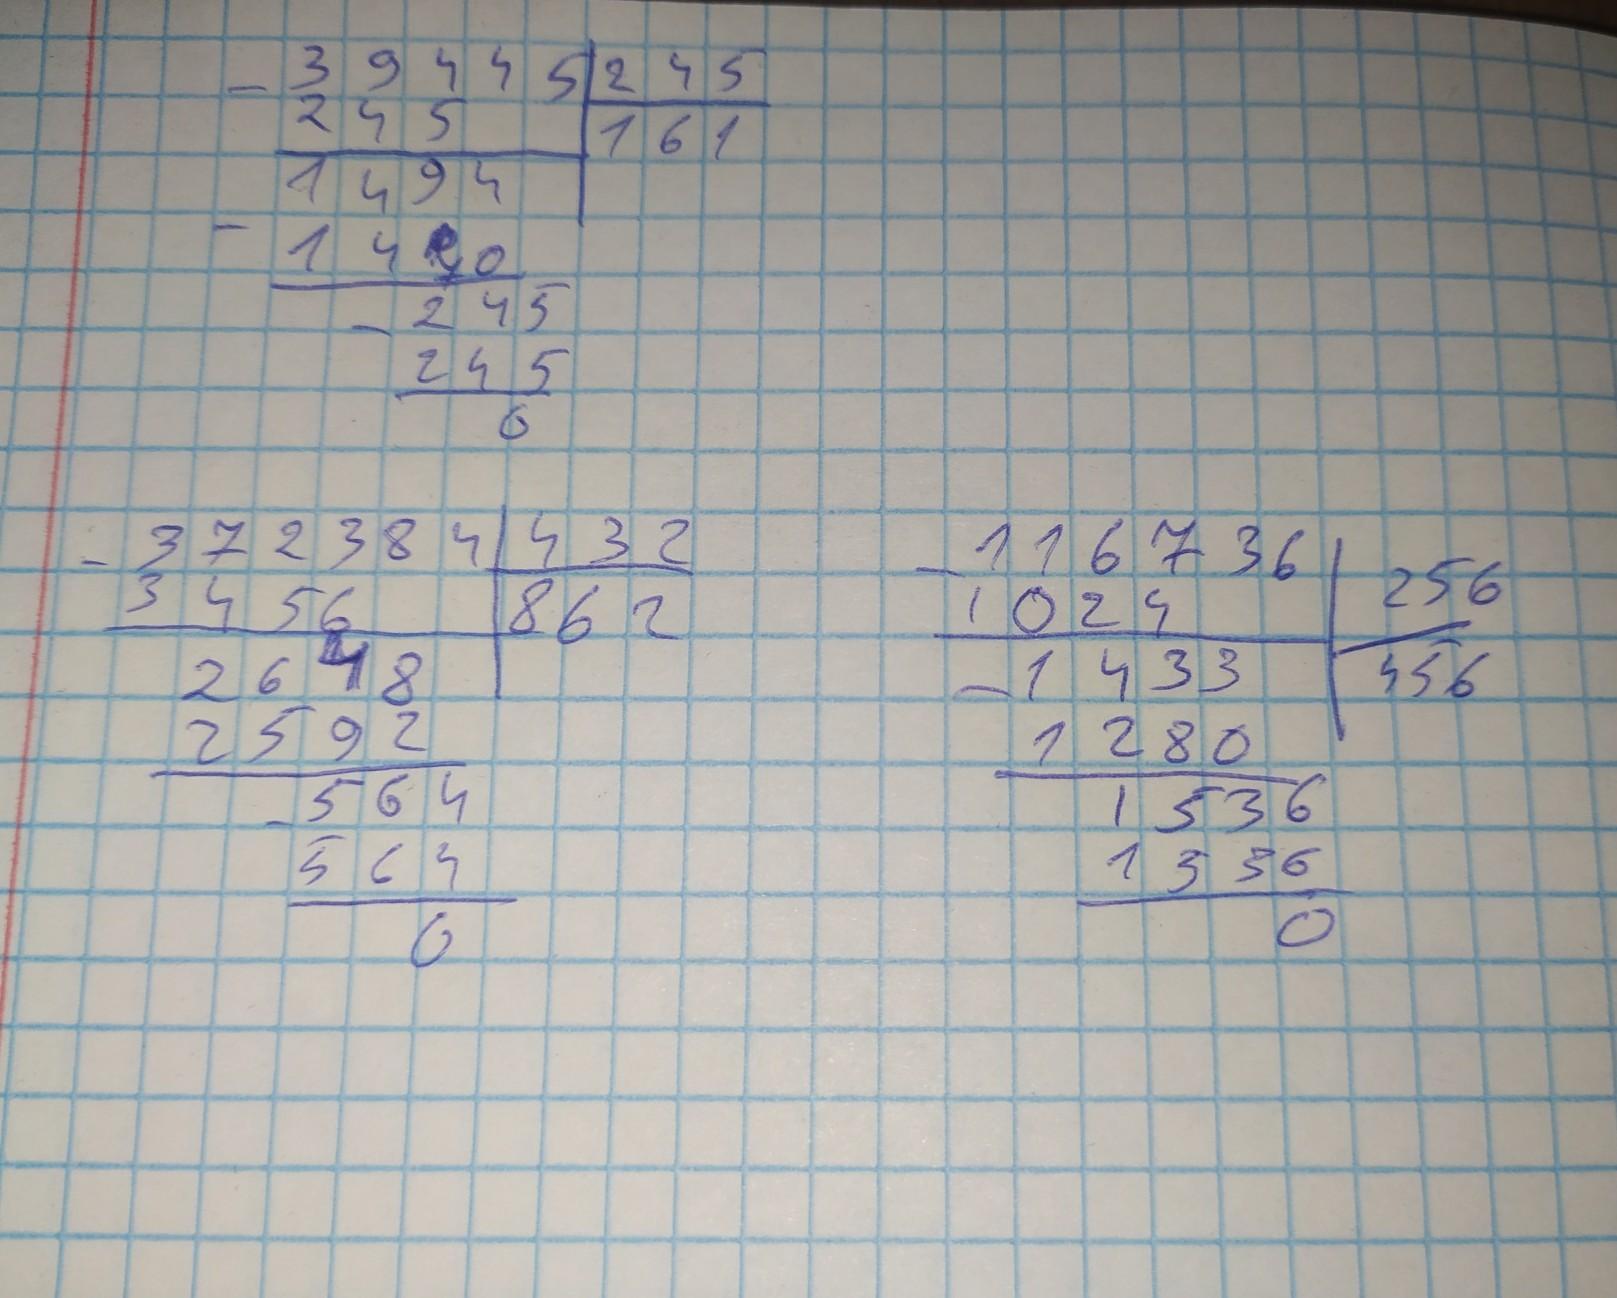 - 39445 | 245
245 | 161
1494
- 1420
- 245
245
0
- 372384 | 432
3456 | 862
2648
2592
- 564
564
0
- 116736 | 256
1024 | 456
- 1433
1280
1536
1536
0